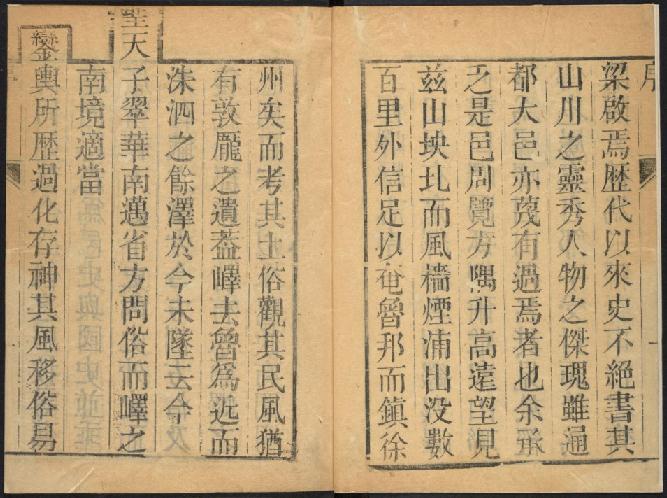 序
梁啟焉歴代以來史不絕書其
山川之靈秀人物之傑瑰雖通
都大邑亦蔑有過焉者也余承
乏是邑周覽方隅升高遠望見
兹山坱圠而風檣煙浦出没數
百里外信足以奄魯邦而鎮徐
州矣而考其土俗觀其民風猶
有敦龐之遺葢嶧去魯為近而
洙泗之餘澤於今未墜云今
聖天子翠華南邁省方問俗而嶧之
南境適當
鑾輿所歴過化存神其風移俗易